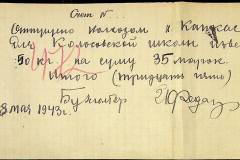 Счет №
Отпущено колхозом "Кавказ
Для Колосовской школы изве
50 кг. на сумму 35 марок.
Итого (тридцать пять)
Бухгалтер
8 мая 1943 г.